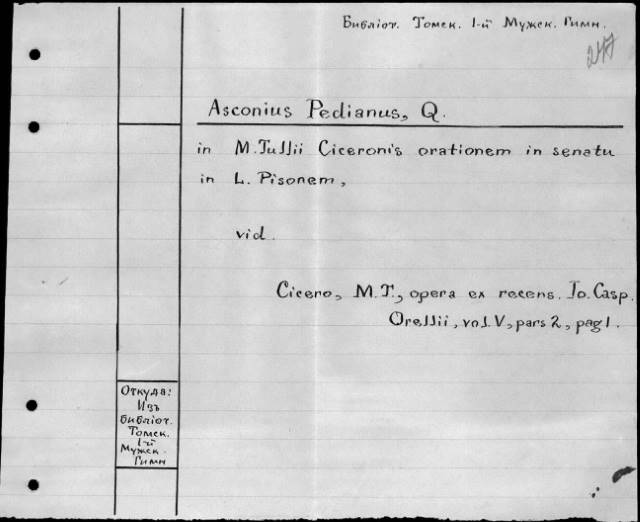 Библіот. Томск. 1-й Мужск. Гимн.
Asconius Pedianus, Q.
in M. Tullii Ciceronis orationem in senatu
in L. Pisonem,
vid.
Cicero, M.T., opera ex recens. Io. Casp.
Orellii, vol. V, pars 2, pag 1.
Откуда:
Изъ
библіот.
Томск.
1-й
Мужск.
Гимн